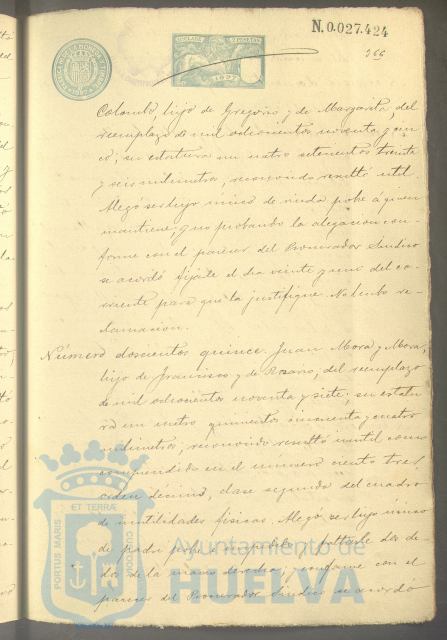 N.0.027.424
366
1897
Colombo, hijo de Gregorio y de Margarita, del
reemplazo de mil ochocientos noventa y cin
co; su estatura un metro setecientos treinta
y seis milimetros, reconocido resultó util.
Alegó ser hijo unico de viuda pobre á quien
mantiene; y no probando la alegacion con-
forme con el parecer del Procurador Sindico
se acordó fijarle el dia veinte y uno del co-
rriente para que la justifique. No hubo re-
clamacion.
Número doscientos quince. Juan Mora y Mora,
hijo de Francisco y de Rosario, del reemplazo
de mil ochocientos noventa y siete; su estatu
ra un metro quinientos cincuenta y cuatro
milimetros; reconocido resultó inutil como
comprendido en el numero ciento tres
orden decimo, clase segunda del cuadro
de inutilidades fisicas. Alegó ser hijo unico
de padre pobre é impedido y faltarle dos de-
dos de la mano derecha; y conforme con el
parecer del Procurador Sindico se acordó
PORTUS MARIS ET TERRÆ CUSTODIA
Ayuntamiento de
HUELVA